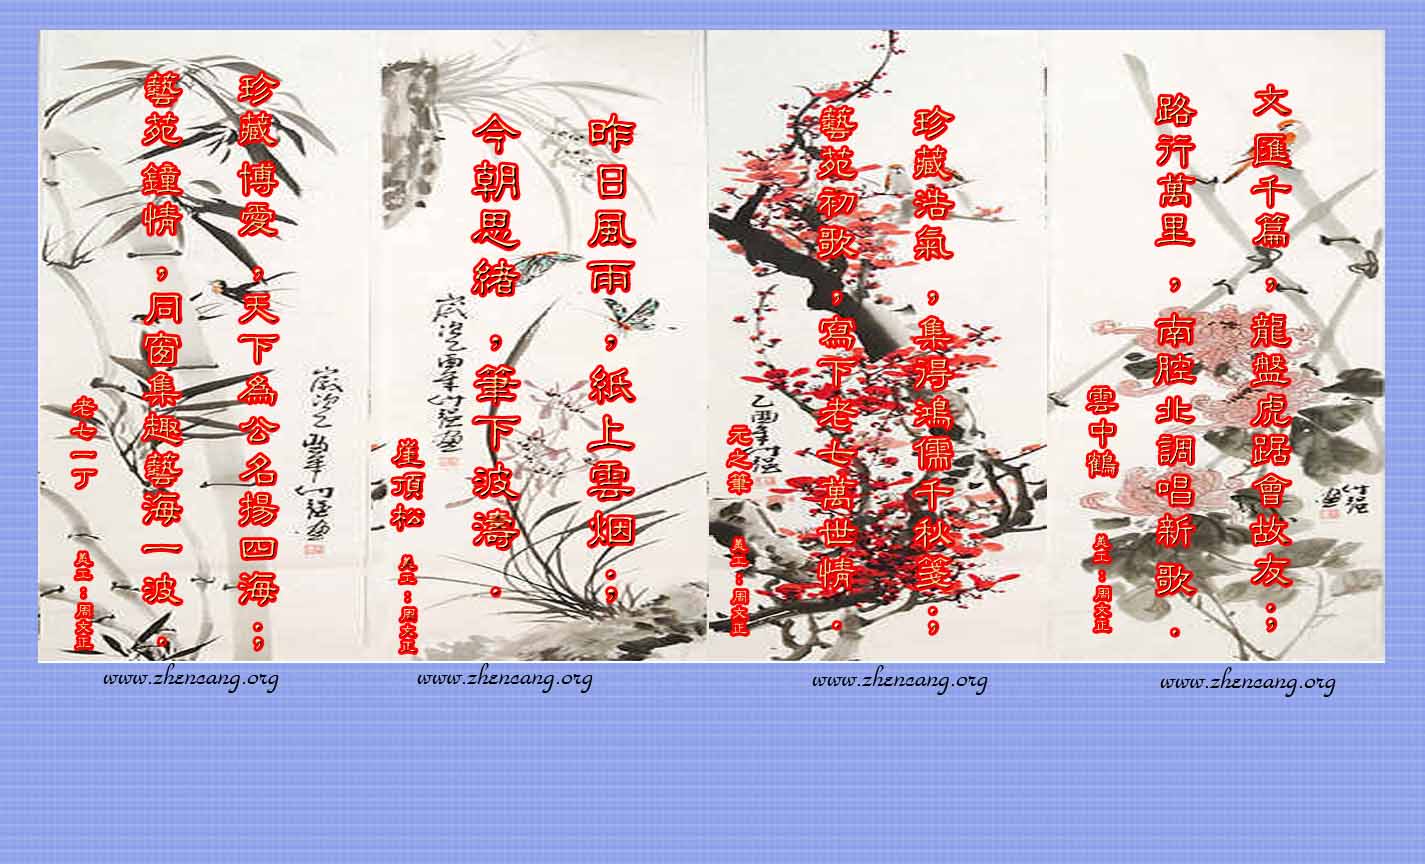 文匯千篇，龍盤虎踞會故友.；
路行萬里，南腔北調唱新歌.
雲中鶴
美工：周文正
竹强画
珍藏浩氣，集得鴻儒千秋箋.；
藝苑初歌，寫下老七萬世情.
元之筆
美工：周文正
乙酉年竹强
昨日風雨，紙上雲烟.；
今朝思緒，筆下波濤.
崖頂松
美工：周文正
歲次乙酉年竹强画
珍藏博愛，天下為公名揚四海.；
藝苑鐘情，同窗集趣藝海一波.
老七一丁
美工：周文正
歲次乙酉年竹强画
www.zhencang.org
www.zhencang.org
www.zhencang.org
www.zhencang.org